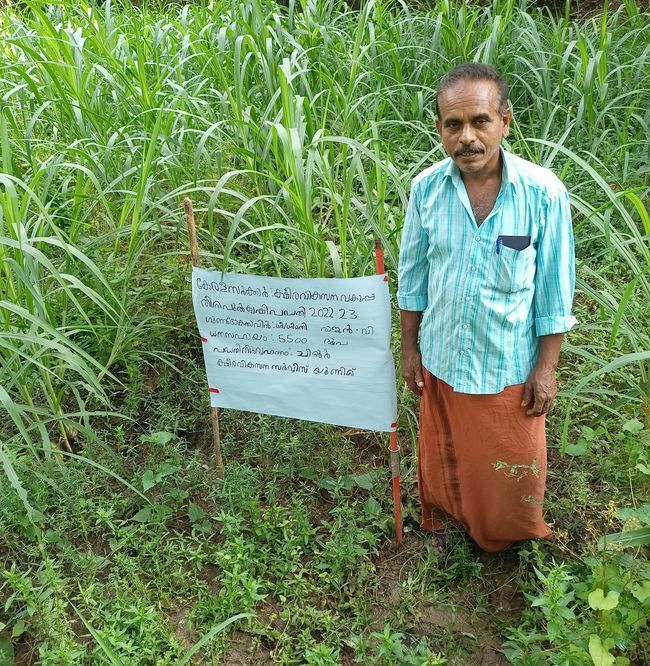 കേരള സർക്കാർ : ക്ഷീരവികസന വകുപ്പ്
തീറ്റപ്പുൽകൃഷി പദ്ധതി 2022-23
ഗുണഭോക്താവിന്റെ രാജൻ . വി
ധനസഹായം : 5500 രൂപ
പദ്ധതി നിർവ്വഹണം : ചിറ്റൂർ
ക്ഷീരവികസന സർവ്വീസ് യൂണിറ്റ്